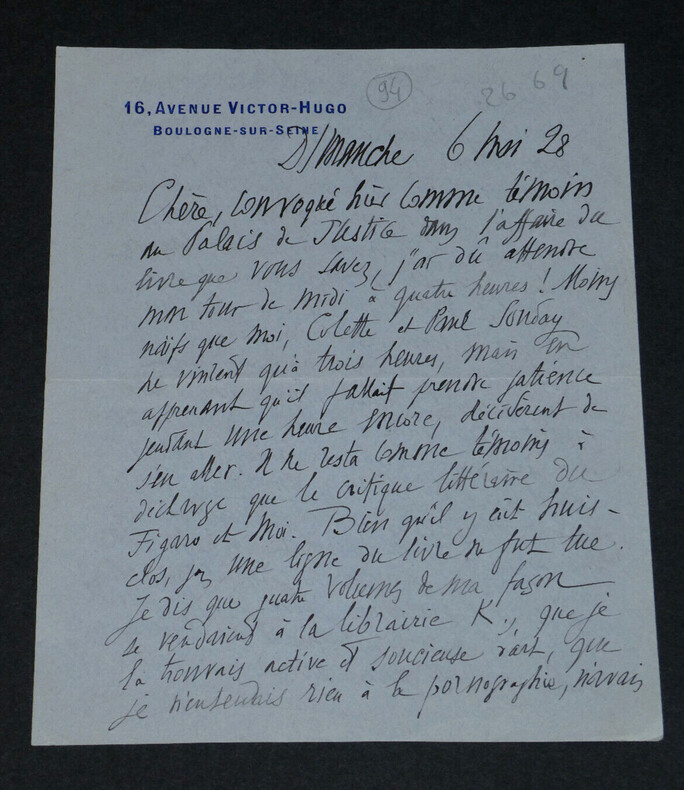 94
26 69
16, AVENUE VICTOR-HUGO
BOULOGNE-SUR-SEINE
Dimanche 6 mai 28
Chère, convoqué hier comme témoin
au Palais de Justice dans l'affaire du
livre que vous savez, j'ai dû attendre
mon tour de midi à quatre heures ! Moins
naïfs que moi, Colette et Paul Souday
ne vinrent qu'à trois heures, mais en
apprenant qu'il fallait prendre patience
pendant une heure encore, décidèrent de
s'en aller. Il ne resta comme témoins à
décharge que le critique littéraire du
Figaro et moi. Bien qu'il y eût huis-
clos, pas une ligne du livre ne fut lue.
Je dis que quatre volumes de ma façon
se vendaient à la librairie K., que je
la trouvais active et soucieuse d'art, que
je n'entendais rien à la pornographie, n'avais